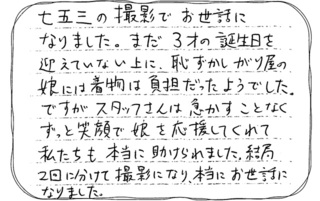 七五三の撮影でお世話に
なりました。まだ3才の誕生日を
迎えていない上に、恥ずかしがり屋の
娘には着物は負担だったようでした。
ですがスタッフさんは急かすことなく
ずっと笑顔で娘を応援してくれて
私たちも本当に助けられました。結局
2回に分けて撮影になり、本当にお世話に
なりました。